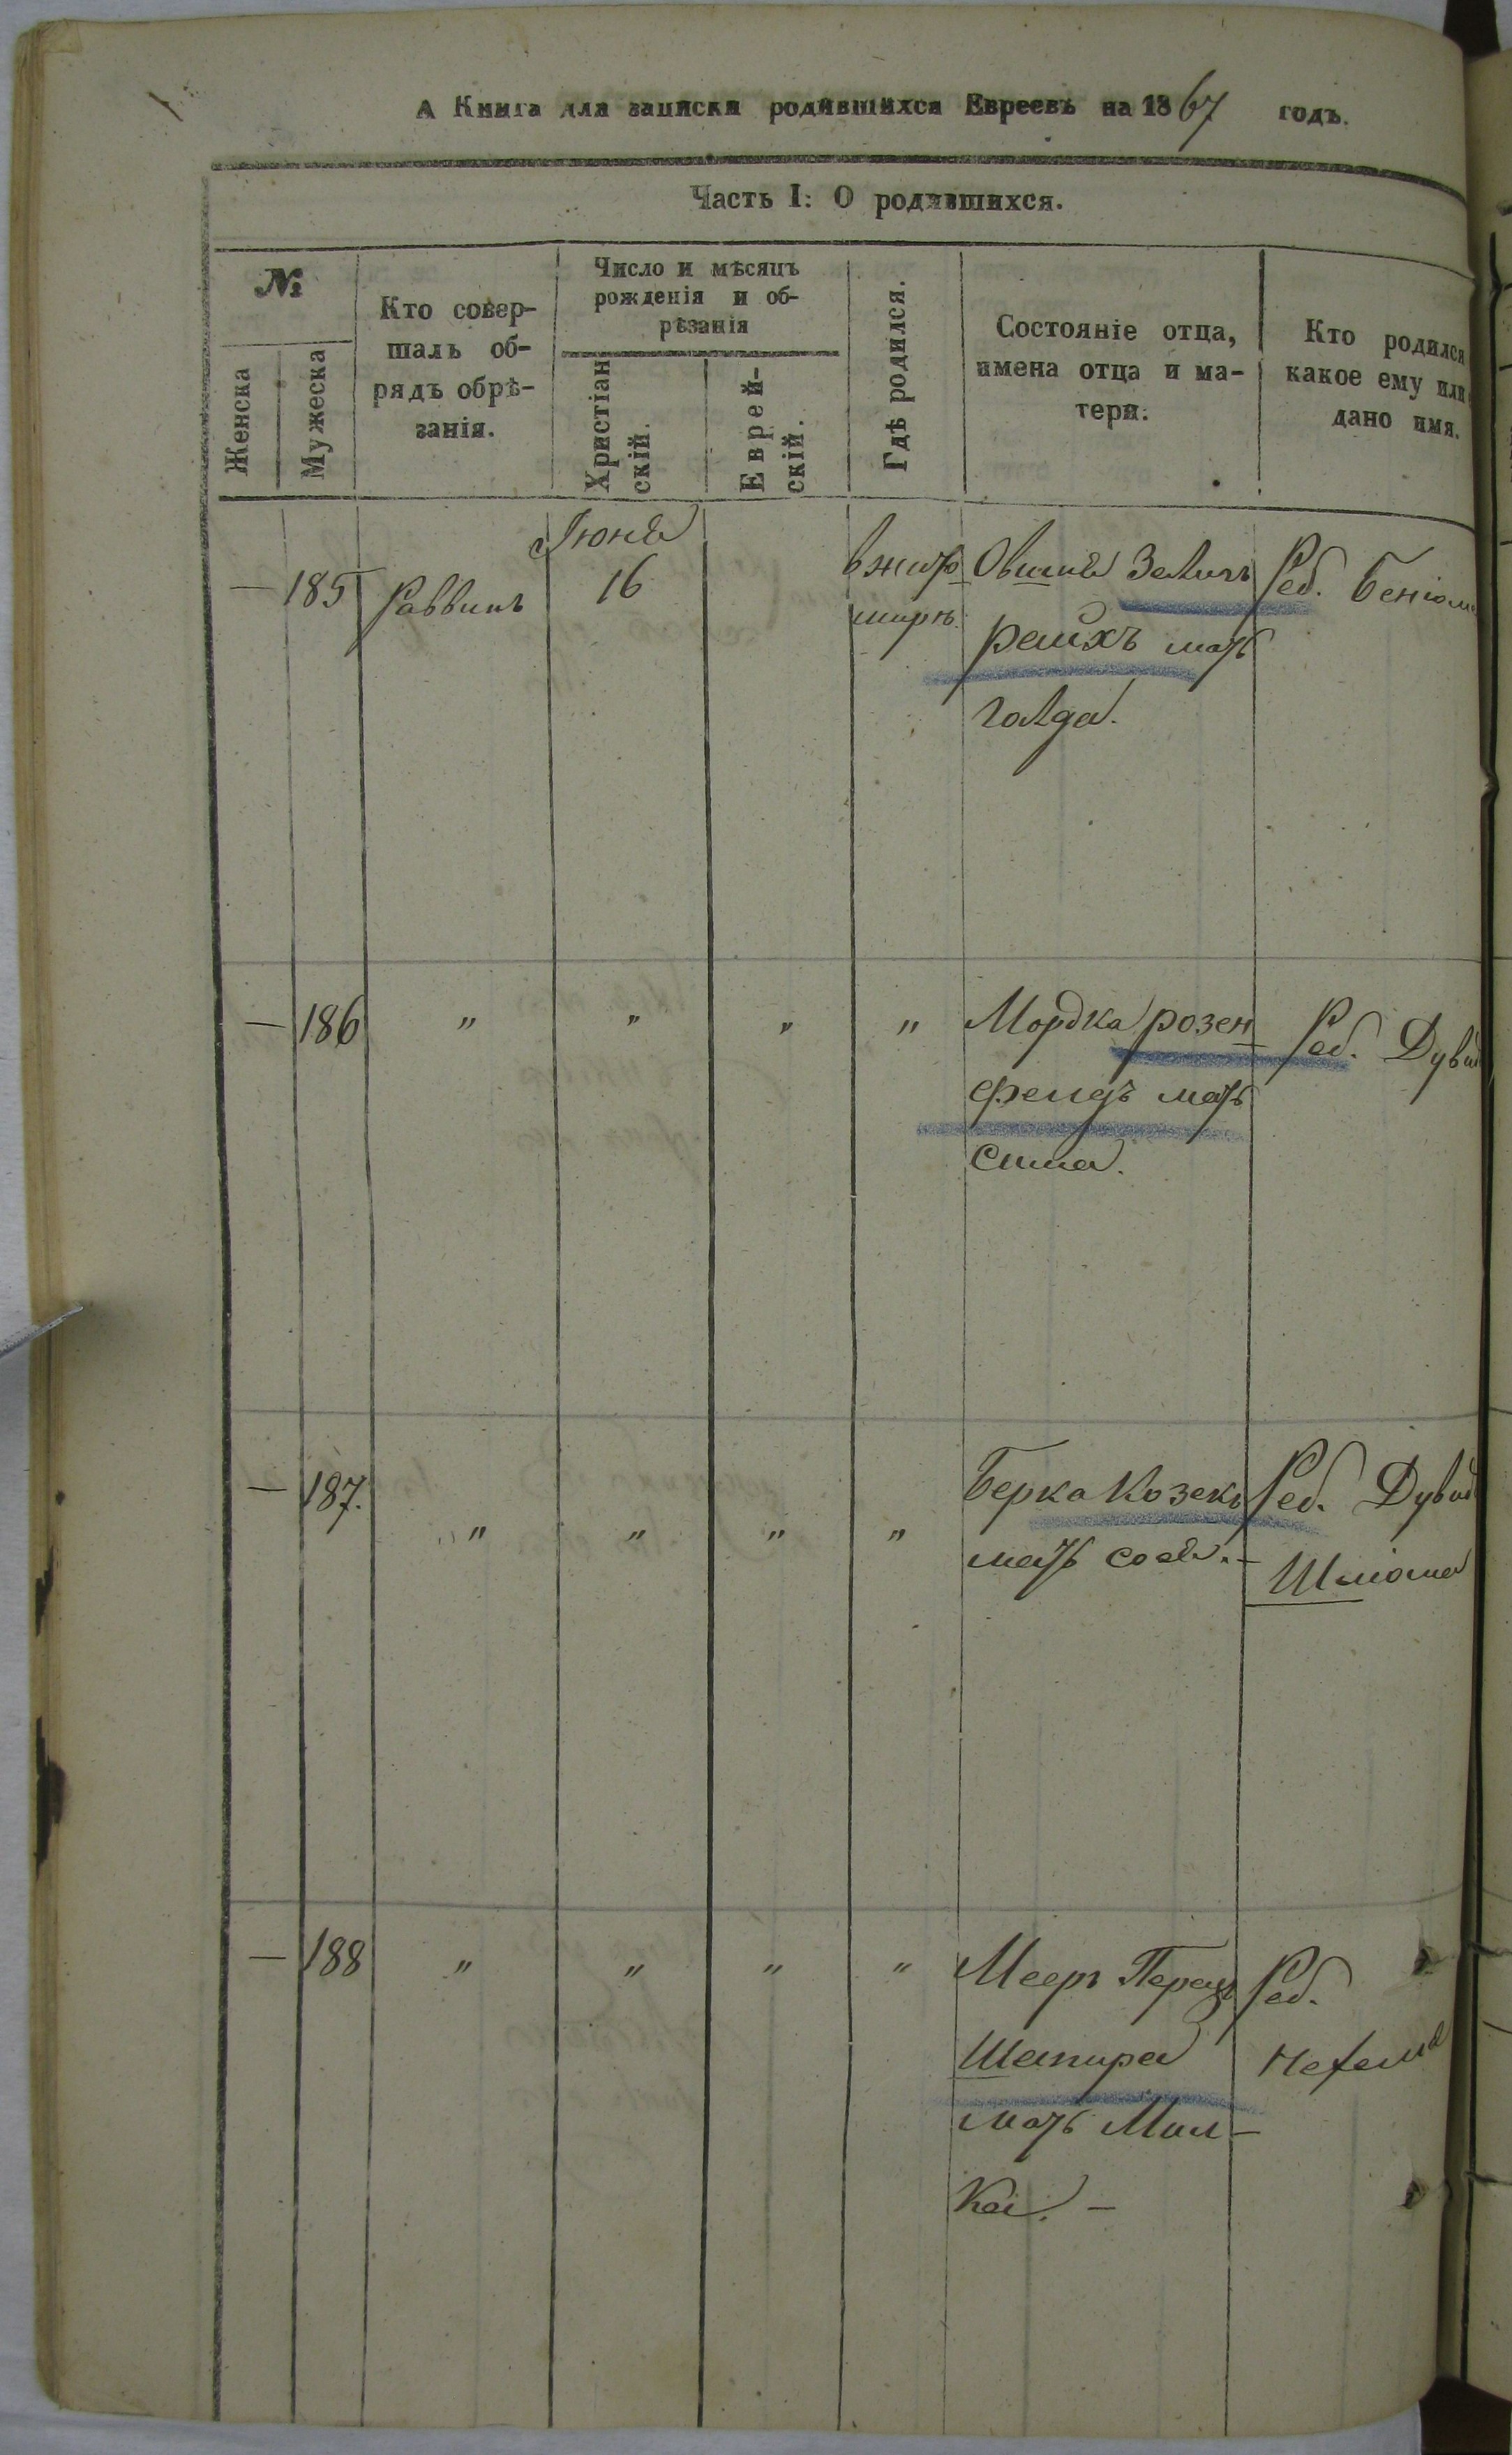 А Книга для записки родившихся Евреевъ на 1867 годъ.
Часть I: О родившихся.
№
Женска
Мужеска
Кто совер-
шалъ об-
рядъ обрѣ-
занія.
Число и мѣсяцъ
рожденія и об-
рѣзанія
Христіан
скій.
Еврей-
скій.
Гдѣ родился.
Состояніе отца,
имена отца и ма-
тери.
Кто родился
какое ему или
дано имя.
Іюня
— 185 Раввинъ 16 вжито
мирѣ.
Овшия Зелигъ
райхъ мать
голда.
Реб. Беніом
— 186 " " " "
Мордка розен
фелдъ мать
Сима.
Реб. Дувид
— 187. " " " "
Берка Козекъ
мать сося. –
Реб. Дувид
Шлiома
— 188 " " " "
Мееръ Перецъ
Шапира
мать Мил-
Ка. –
Реб.
Нехемя